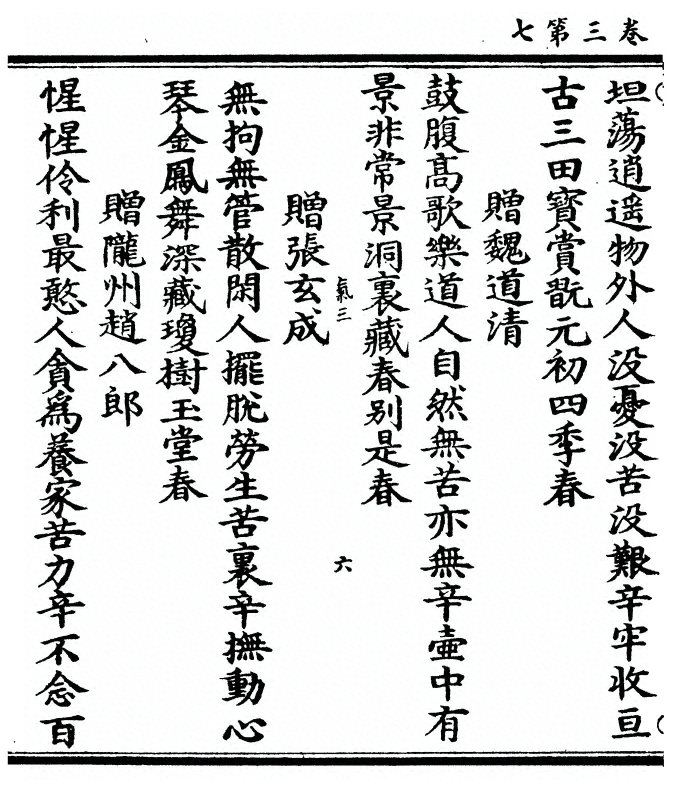 卷三第七
坦蕩逍遥物外人没憂没苦没艱辛牢收亘
古三田寶賞翫元初四季春
贈魏道清
鼓腹高歌樂道人自然無苦亦無辛壺中有
景非常景洞裏藏春别是春
氣三
六
贈張玄成
無拘無管散閑人擺脫勞生苦裏辛撫動心
琴金鳳舞深藏瓊樹玉堂春
贈隴州趙八郎
惺惺伶利最憨人貪爲養家苦力辛不念百